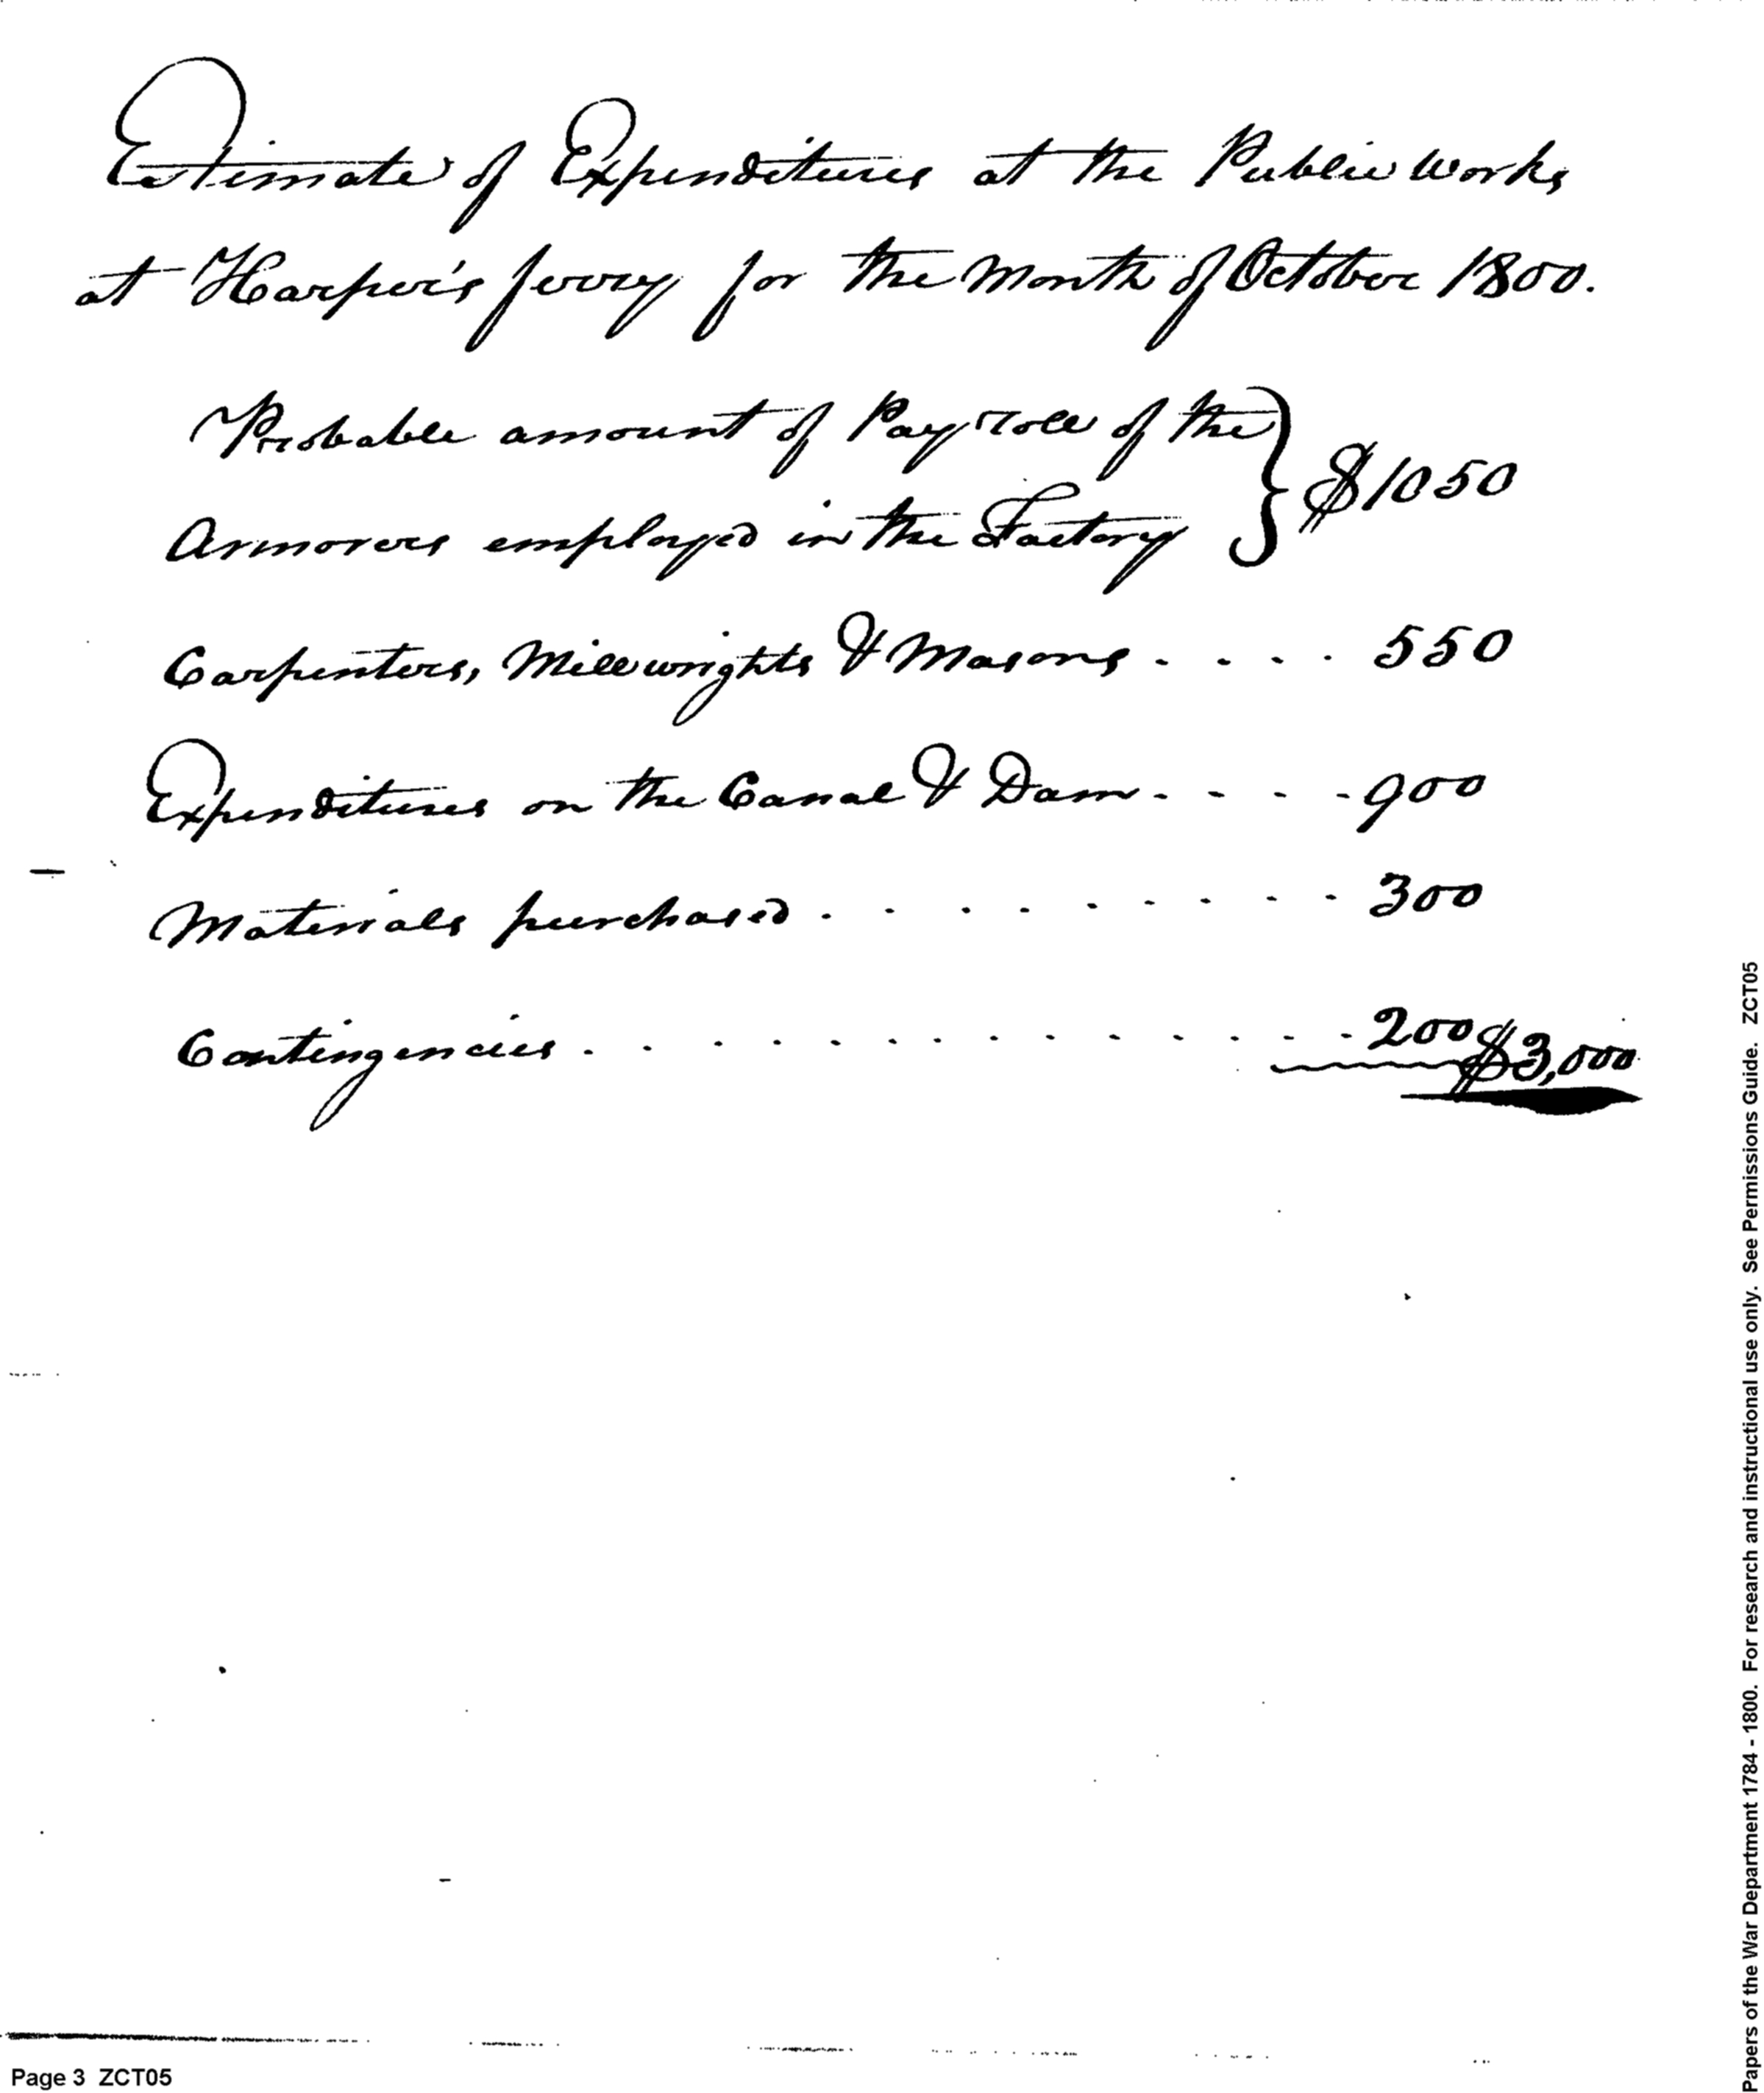 Estimate of Expenditures at the Public Works
at Harper's ferry for the Month of October 1800.
Probable amount of Pay role of the
Armorers employed in the Factory } $1050
Carpenters, Millwrights & Masons - - - - 550
Expenditures on the Canal & Dam - - - - 900
Materials purchased - - - - - - - - - 300
Contingencies - - - - - - - - - - - - - - 200
$3,000
Page 3 ZCT05
Papers of the War Department 1784 - 1800. For research and instructional use only. See Permissions Guide. ZCT05